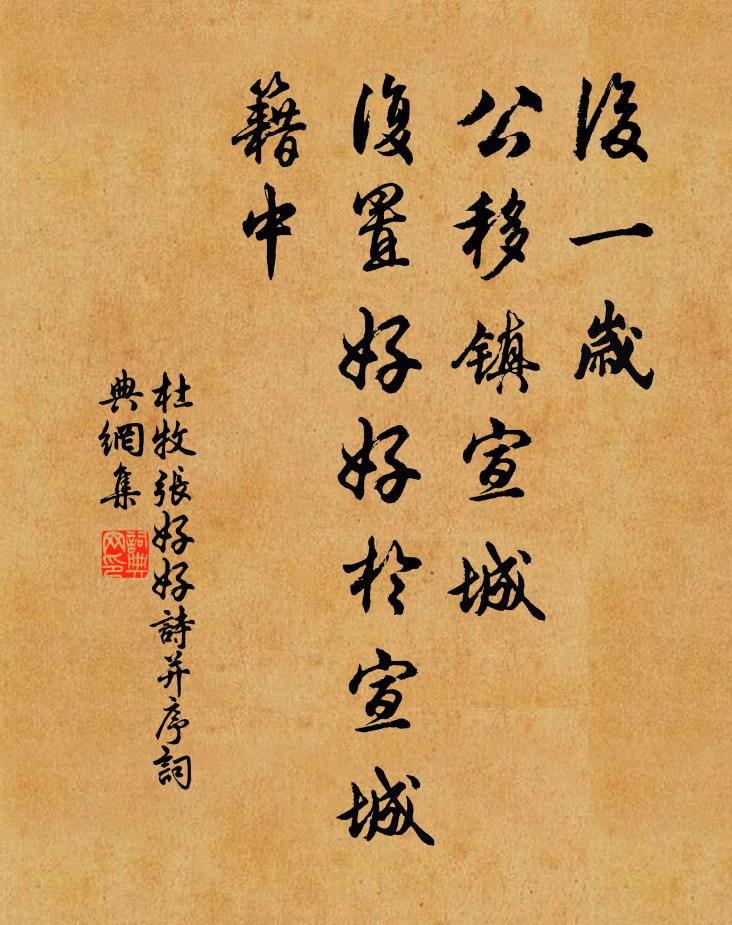 後一歲
公移鎮宣城
復置好好於宣城
籍中
杜牧張好好詩并序詞
典網集
詞典
网印